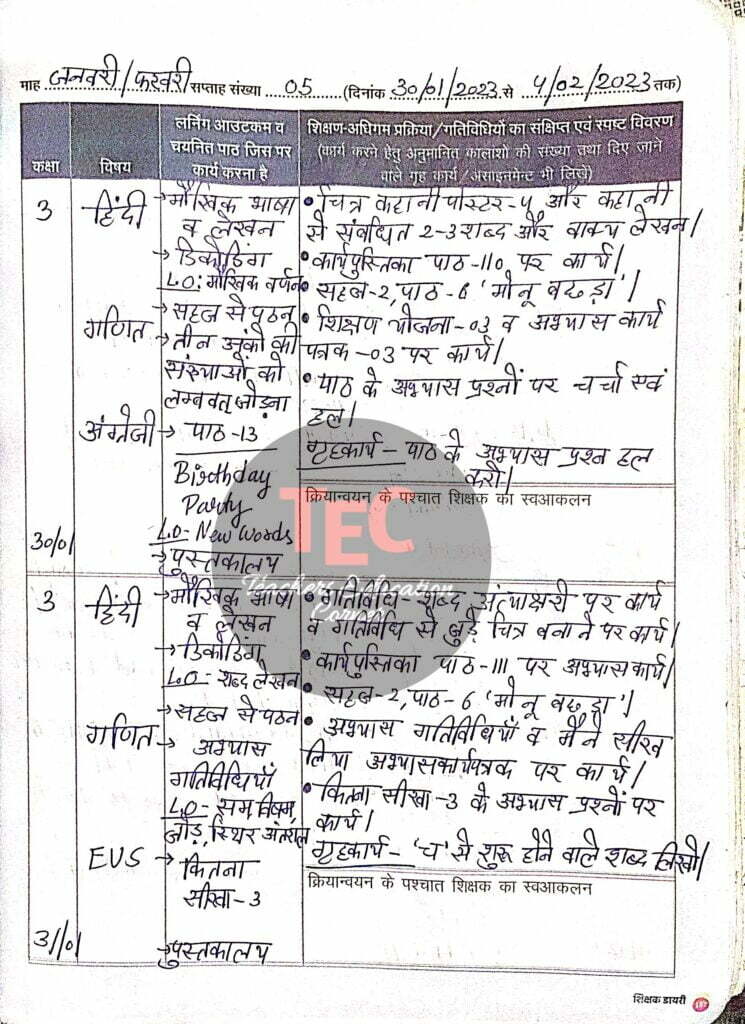 माह जनवरी/फरवरी सप्ताह संख्या 05 (दिनांक 30/01/2023 से 4/02/2023 तक)
कक्षा
विषय
लर्निंग आउटकम व
चयनित पाठ जिस पर
कार्य करना है
शिक्षण-अधिगम प्रक्रिया/गतिविधियों का संक्षिप्त एवं स्पष्ट विवरण
(कार्य करने हेतु अनुमानित कालांशो की संख्या तथा दिए जाने
वाले गृह कार्य/असाइनमेन्ट भी लिखें)
3
हिंदी
→ मौखिक भाषा
व लेखन
→ डिकोडिंग
L.O: मौखिक वर्णन
→ सहज से पठन
गणित
→ तीन अंकों की
संख्याओं को
लम्बवत् जोड़ना
अंग्रेजी
→ पाठ -13
Birthday
Party
L.O- New Words
30/01
→ पुस्तकालय
• चित्र कहानी पोस्टर-4 और कहानी
से संबंधित 2-3 शब्द और वाक्य लेखन।
• कार्यपुस्तिका पाठ-110 पर कार्य।
• सहज-2, पाठ-6 'मोनू बछड़ा'।
• शिक्षण योजना-03 व अभ्यास कार्य
पत्रक-03 पर कार्य।
• पाठ के अभ्यास प्रश्नों पर चर्चा एवं
हल।
गृहकार्य – पाठ के अभ्यास प्रश्न हल
करो।
क्रियान्वयन के पश्चात शिक्षक का स्वआकलन
TEC
Teachers Education
Corner
3
हिंदी
→ मौखिक भाषा
व लेखन
→ डिकोडिंग
L.O- शब्द लेखन
→ सहज से पठन
गणित
→ अभ्यास
गतिविधियाँ
L.O- सम विषम,
जोड़, स्थिर अंतराल
EVS
→ कितना
सीखा-3
31/01
→ पुस्तकालय
• गतिविधि- शब्द अंत्याक्षरी पर कार्य
व गतिविधि से जुड़े चित्र बनाने पर कार्य।
• कार्यपुस्तिका पाठ-111 पर अभ्यास कार्य।
• सहज-2, पाठ-6 'मोनू बछड़ा'।
• अभ्यास गतिविधियाँ व मैंने सीख
लिया अभ्यासकार्यपत्रक पर कार्य।
• कितना सीखा-3 के अभ्यास प्रश्नों पर
कार्य।
गृहकार्य – 'च' से शुरू होने वाले शब्द लिखो।
क्रियान्वयन के पश्चात शिक्षक का स्वआकलन
शिक्षक डायरी